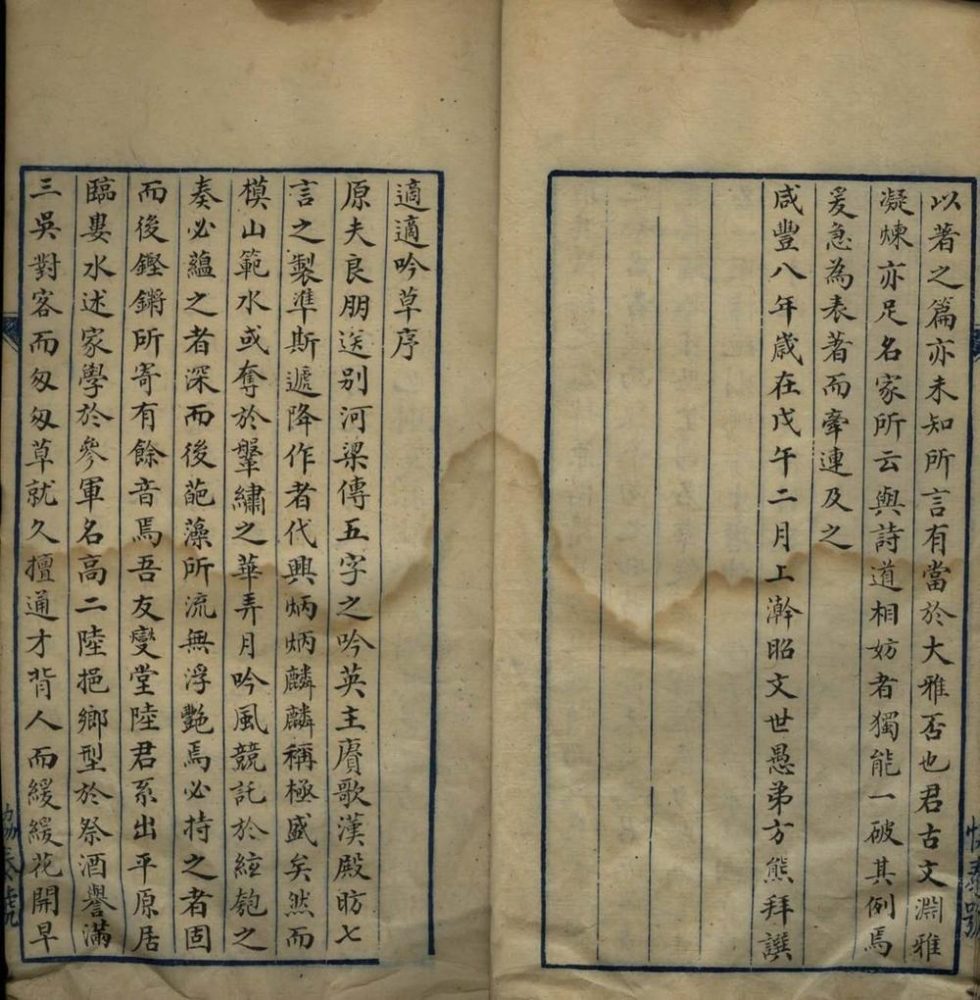 以著之篇亦未知所言有當於大雅否也君古文淵雅
凝煉亦足名家所云與詩道相妨者獨能一破其例焉
爰急為表著而牽連及之
咸豐八年歲在戊午二月上澣昭文世愚弟方熊拜譔
適適吟草序
原夫良朋送别河梁傳五字之吟英主賡歌漢殿昉七
言之製準斯遞降作者代興炳炳麟麟稱極盛矣然而
模山範水或奪於鞶繡之華弄月吟風競託於絃匏之
奏必蘊之者深而後葩藻所流無浮艷焉必持之者固
而後鏗鏘所寄有餘音焉吾友燮堂陸君系出平原居
臨婁水述家學於參軍名高二陸挹鄉型於祭酒譽滿
三吳對客而匆匆草就久擅通才背人而緩緩花開早